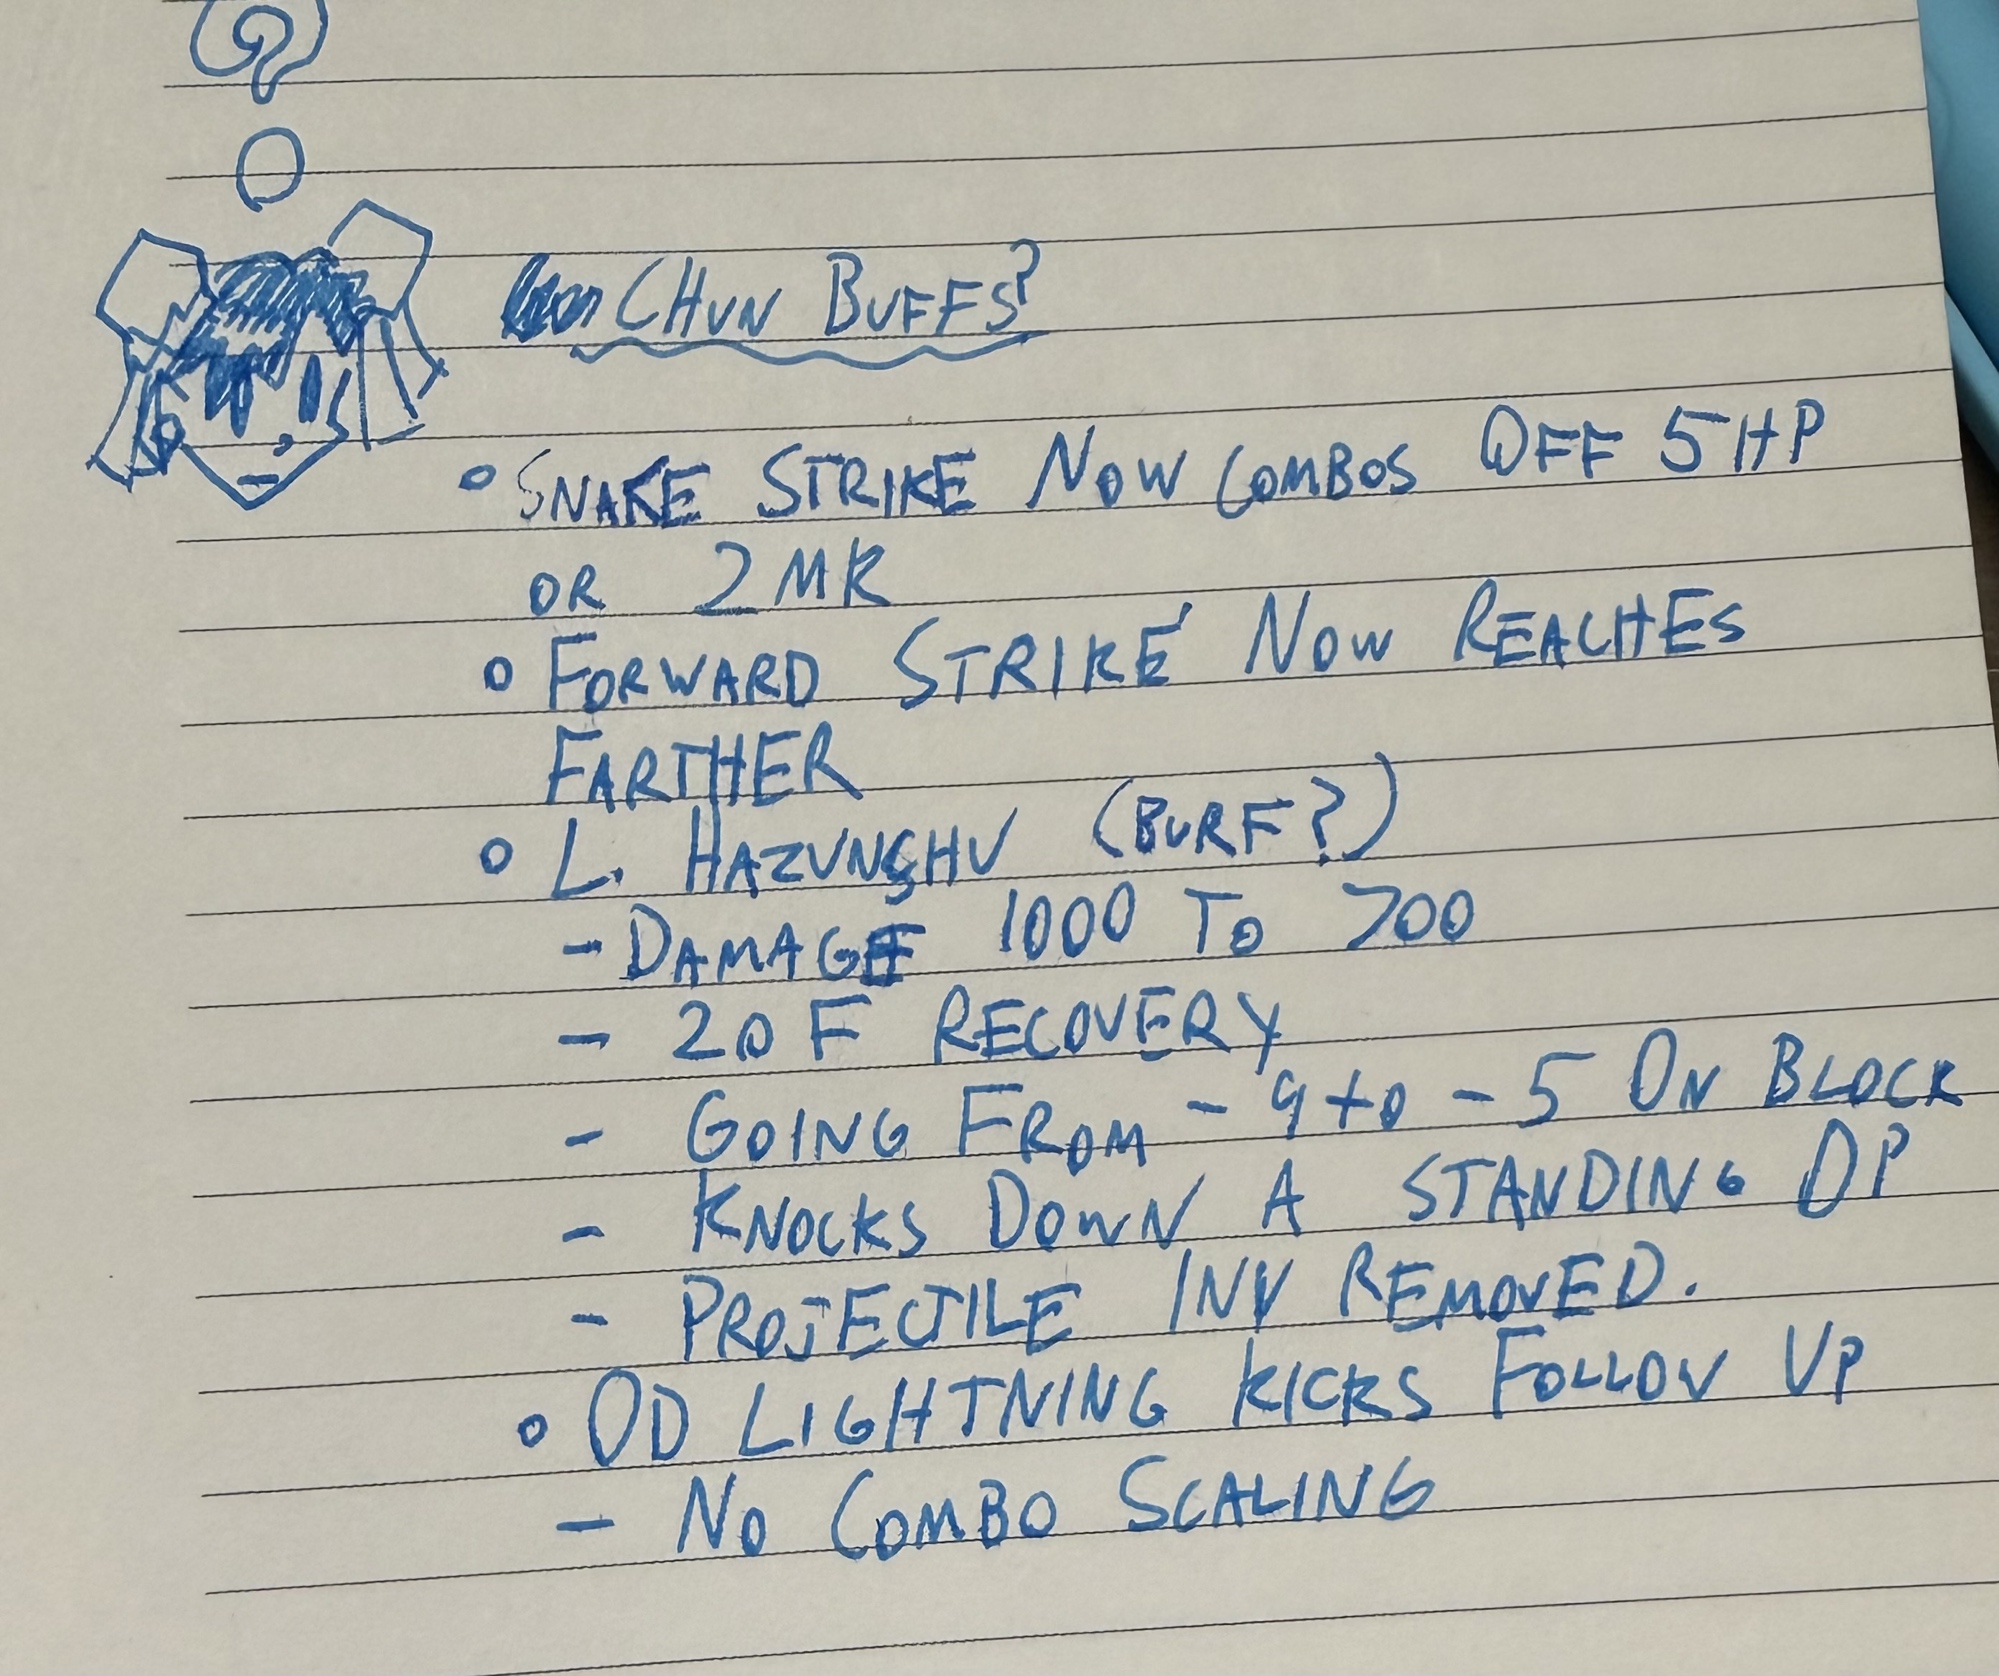 CHUN BUFFS?
SNAKE STRIKE NOW COMBOS OFF 5HP
OR 2MK
FORWARD STRIKE NOW REACHES
FARTHER
L. HAZUNSHU (BURF?)
- DAMAGE 1000 TO 700
- 20 F RECOVERY
- GOING FROM -9 to -5 ON BLOCK
- KNOCKS DOWN A STANDING OP
- PROJECTILE INV REMOVED.
OD LIGHTNING KICKS FOLLOW UP
- NO COMBO SCALING